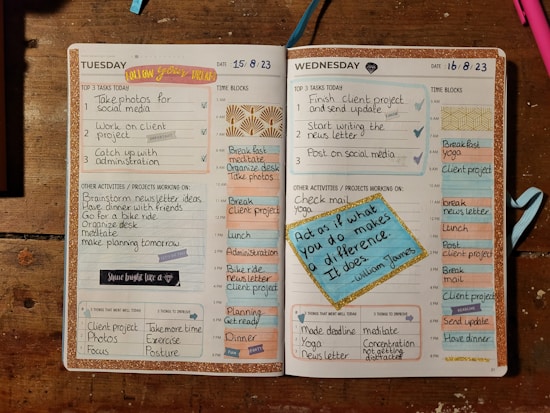 TUESDAY
FOLLOW your DREAMS
DATE 15/8/23
TOP 3 TASKS TODAY
1 Take photos for
social media
2 Work on client
project
3 Catch up with
administration
OTHER ACTIVITIES / PROJECTS WORKING ON:
Brainstorm newsletter ideas
Have dinner with friends
Go for a bike ride
Organize desk
meditate
make planning tomorrow
Shine bright like a
3 THINGS THAT WENT WELL TODAY
3 THINGS TO IMPROVE
Client project
Take more time
Photos
Exercise
Focus
Posture
TIME BLOCKS
Breakfast
meditate
Organize desk
Take photos
Break
Client project
Lunch
Administration
Bike ride
newsletter
Client project
Planning
Get ready
Dinner
WEDNESDAY
DATE 16/8/23
TOP 3 TASKS TODAY
1 Finish client project
and send update
2 Start writing the
news letter
3 Post on social media
OTHER ACTIVITIES / PROJECTS WORKING ON:
Check mail
yoga
Act as if what
you do makes
a difference.
It does.
- William James
3 THINGS THAT WENT WELL TODAY
3 THINGS TO IMPROVE
Made deadline
meditate
Yoga
Concentration
Newsletter
Not getting
distracted
TIME BLOCKS
Breakfast
yoga
Client project
break
News letter
Lunch
Post
Client project
Break
mail
Client project
DEADLINE
Send update
Have dinner